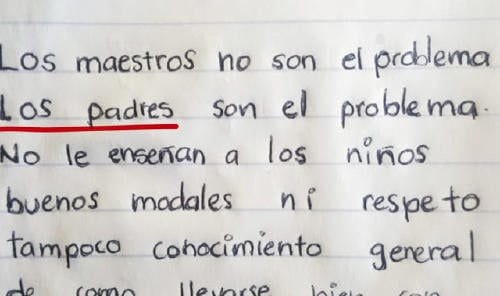 Los maestros no son el problema
Los padres son el problema.
No le enseñan a los niños
buenos modales ni respeto
tampoco conocimiento general
de como llevarse bien con